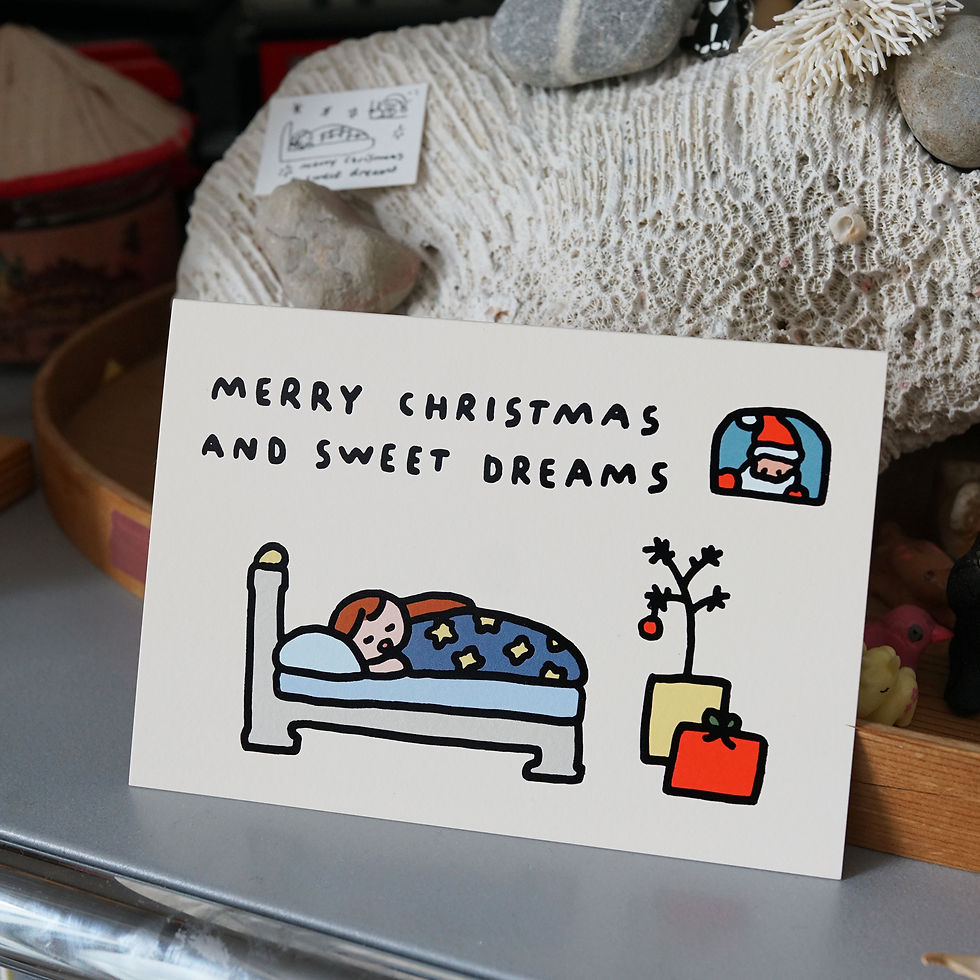 merry Christmas
sweet dreams
MERRY CHRISTMAS
AND SWEET DREAMS